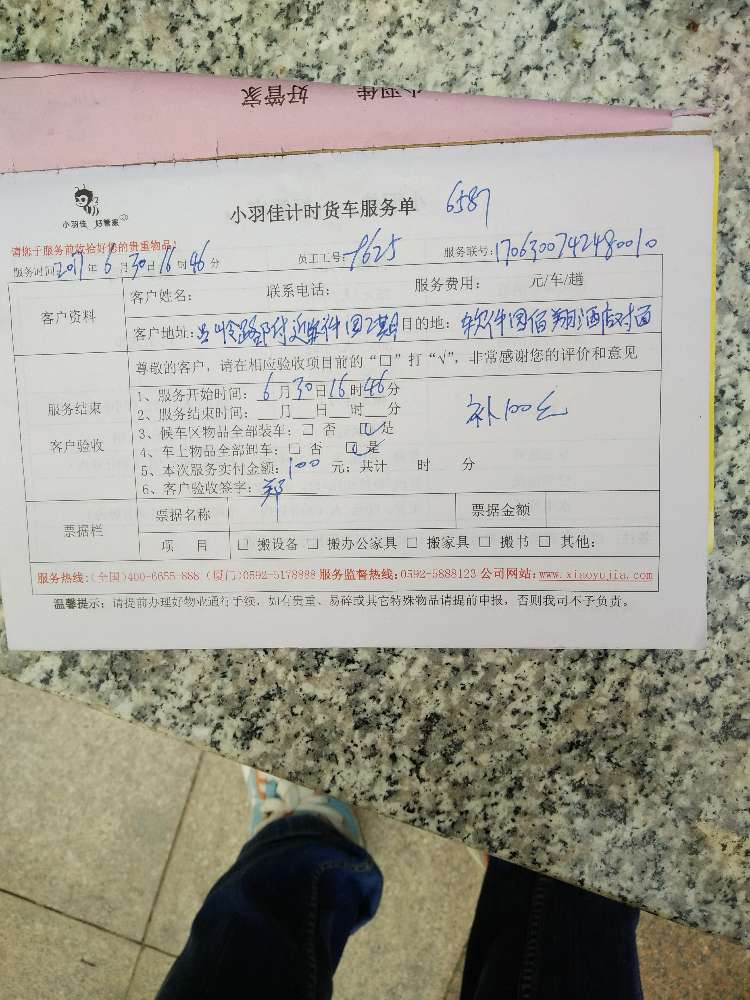 小羽佳 好管家
小羽佳 好管家
小羽佳计时货车服务单 6587
请您于服务前放恰好您的贵重物品!
服务时间 2017年 6月30日16时46分 员工工号: 9625 服务联号: 1706300742480010
客户资料
客户姓名: 联系电话: 服务费用: 元/车/趟
客户地址: 岭路 附近软件园2期 目的地: 软件园佰翔酒店对面
服务结束
客户验收
尊敬的客户,请在相应验收项目前的“□”打“√”,非常感谢您的评价和意见
1、服务开始时间: 6月30日16时46分
2、服务结束时间: 月 日 时 分
3、候车区物品全部装车: □ 否 ☑ 是
4、车上物品全部卸车: □ 否 ☑ 是
5、本次服务实付金额: 100 元; 共计 时 分
6、客户验收签字: 郑
补100元
票据栏
票据名称 票据金额
项 目 □ 搬设备 □ 搬办公家具 □ 搬家具 □ 搬书 □ 其他:
服务热线:(全国)400-6655-888 (厦门)0592-5178888 服务监督热线:0592-5888123 公司网站: www.xiaoyujia.com
温馨提示: 请提前办理好物业通行手续, 如有贵重、易碎或其它特殊物品请提前申报, 否则我司不予负责。